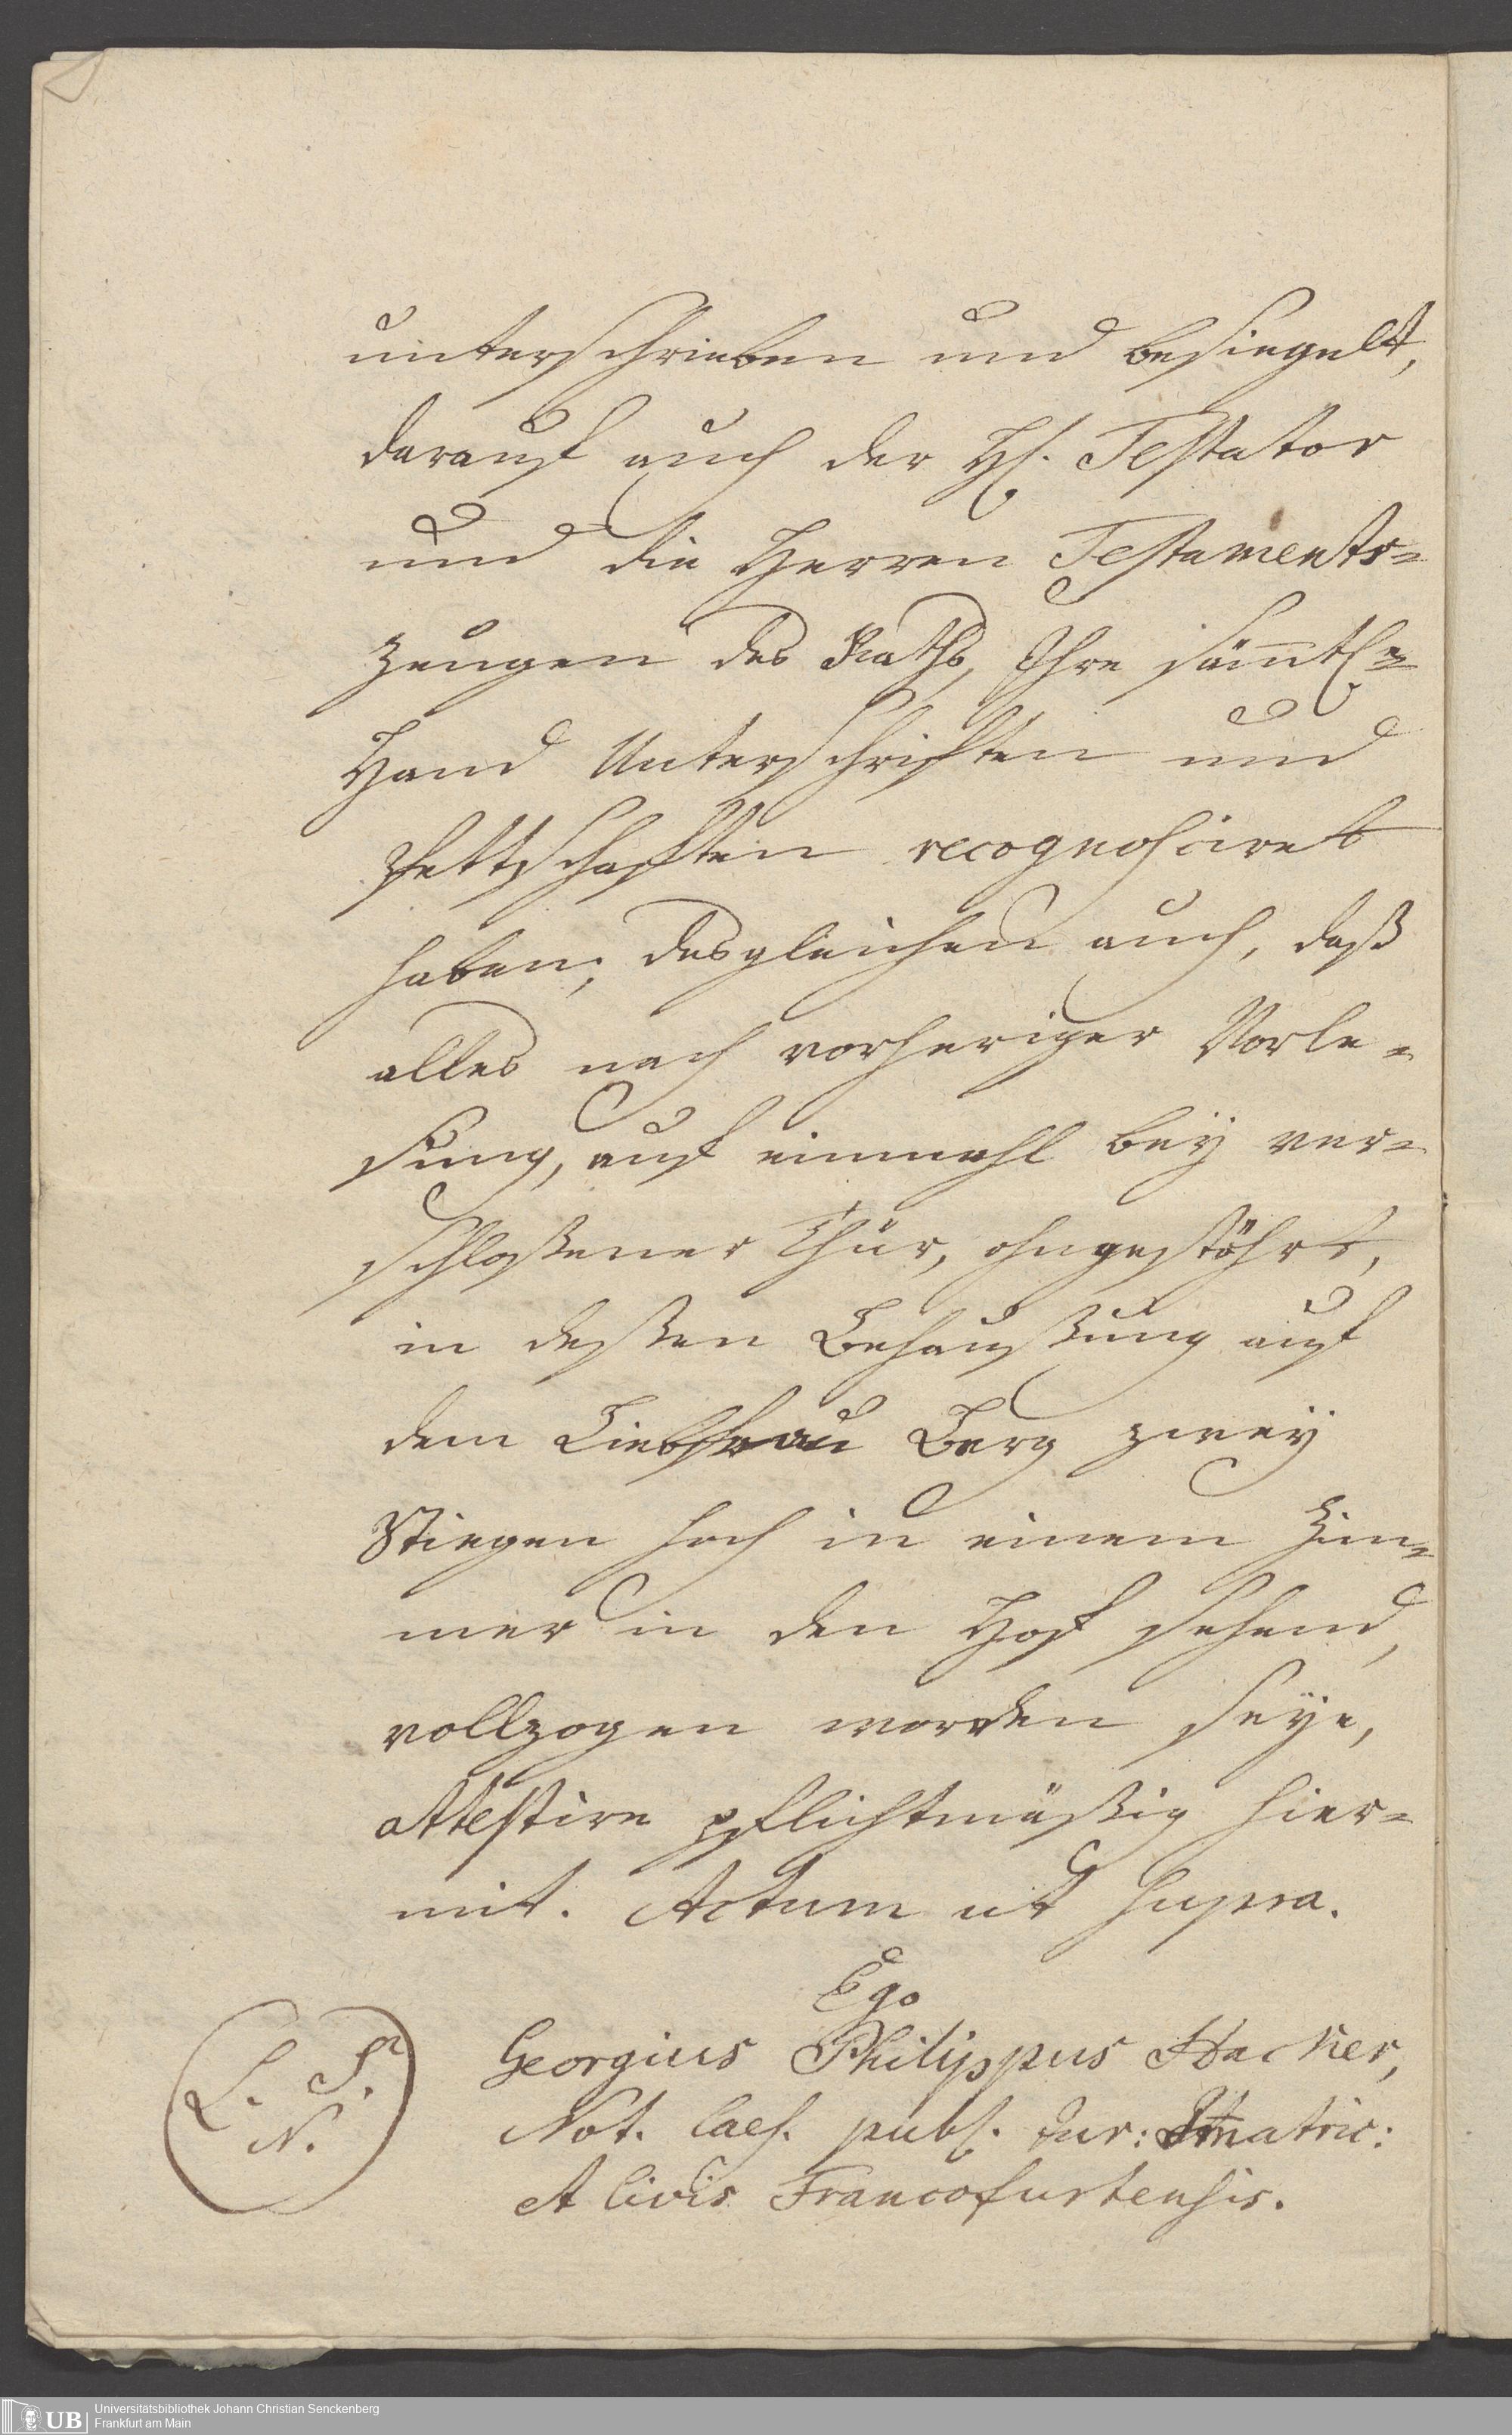 unterschrieben und besiegelt,
darauf auch der H. Testator
und die Herren Testaments-
zeugen des Raths, Ihre sämtl.
Hand Unterschriften und
Pettschafften recognosciret
haben; desgleichen auch, daß
alles nach vorheriger Vorle-
sung, auf einmahl bey ver-
schloßener Thür, ohngestöhrt,
in deßen Behaußung auf
dem Liebfrau Berg zwey
Stiegen hoch in einem Zim-
mer in den Hof sehend,
vollzogen worden seye,
attestire pflichtmäßig hier-
mit. Actum ut supra.
Ego
Georgius Philippus Hacker,
L. S.
N.
Not. Caes. publ. jur: Immatric:
et Civis Francofurtensis.
UB
Universitätsbibliothek Johann Christian Senckenberg
Frankfurt am Main